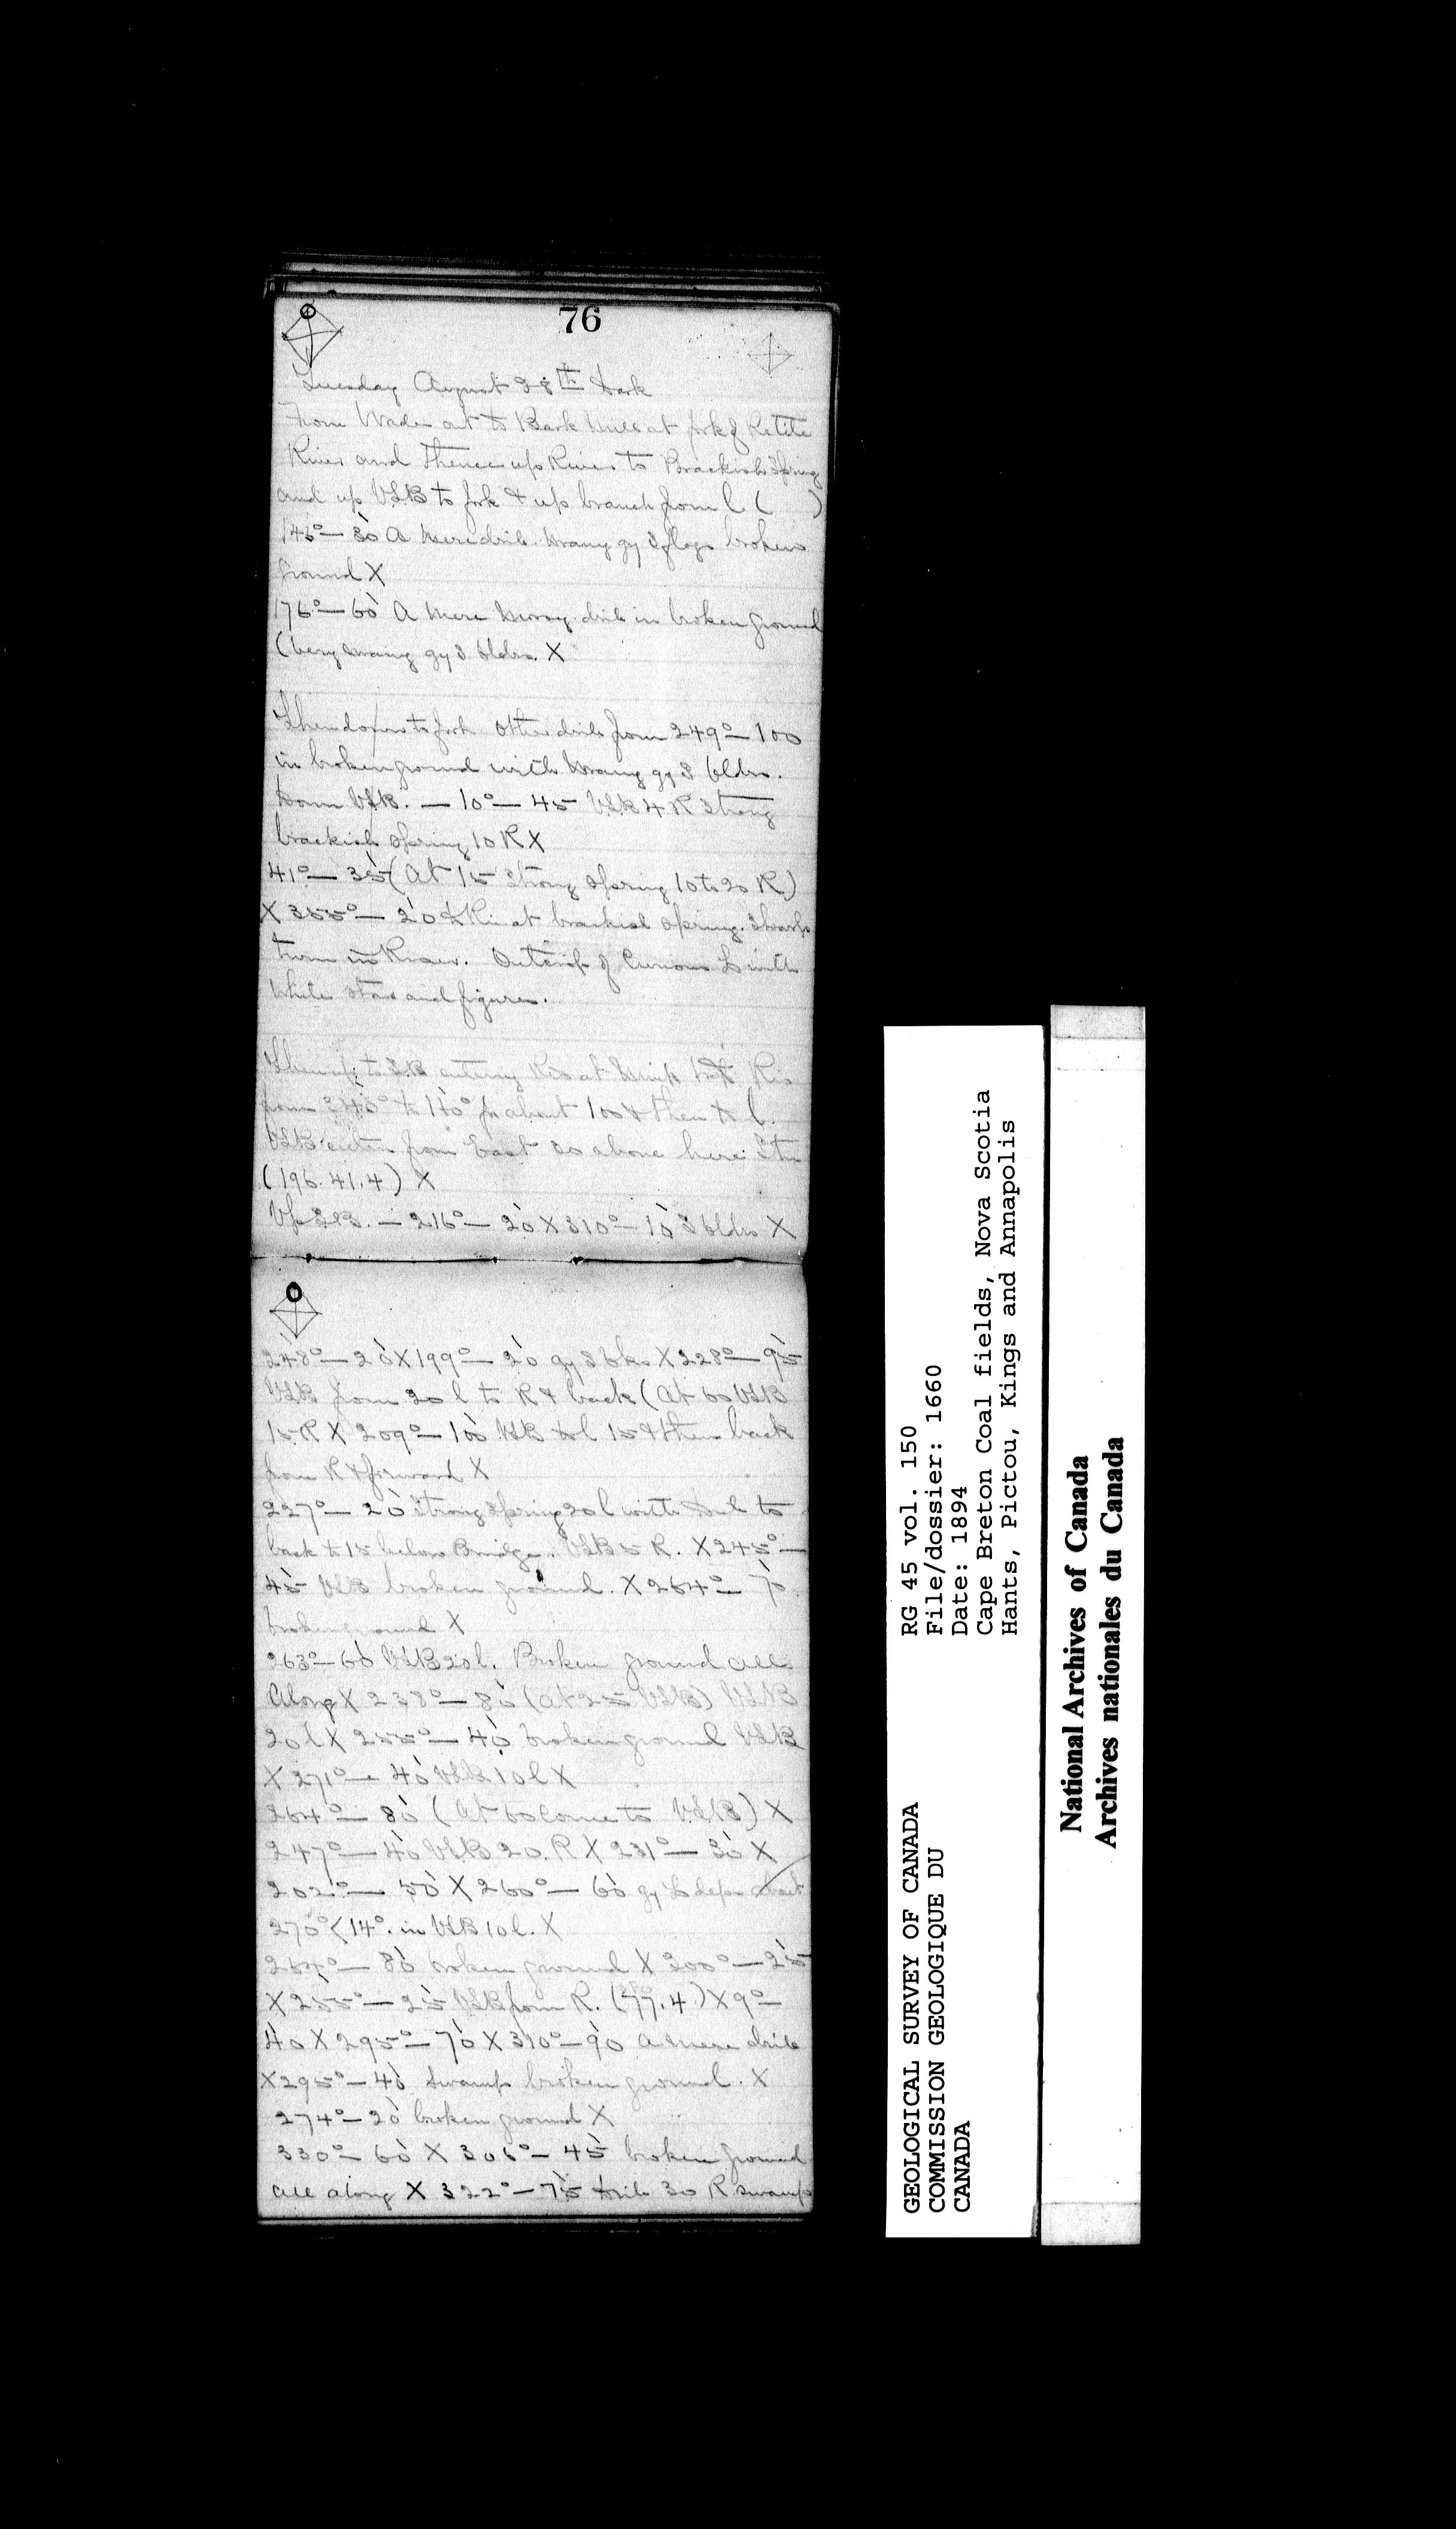 76
Tuesday August 28th Dark
From Wades out to Bark Mill at fork of Petite
River and thence up River to Brackish Spring
and up VSB to fork & up branch from l ( )
146° — 30 A mere drib. Many gy S flags broken
ground X
176° — 60 A mere mossy drib in broken ground
(Very many gy S bldrs. X
Then down to fork other drib from 249° — 100
in broken ground with many gy S bldrs.
Down VSB. — 10° — 45 VSB 4 R strong
brackish spring 10 R X
41° — 35 (At 15 strong spring 10 to 20 R)
X 355° — 20 to Riv at brackish spring. Sharp
turn in River. Outcrop of Curious Ls with
white stars and figures.
Then up to SB entering Riv at Riv
from 340° to 110° for about 100 & then to l.
VSB enters from East 20 above here
(196.41.4) X
Up SB. — 216° — 20 X 310° — 10 S bldrs X
248° — 20 X 199° — 20 gy S bks X 228° — 95
VSB from 20 l to R & back (At 60 VSB
15 R X 209° — 100 VSB to l 15 & then back
from R & forward X
227° — 20 Strong Spring 20 l with to
back to 15 below Bridge. VSB 5 R. X 245° —
45 VSB broken ground. X 264° — 70.
broken ground X
263° — 60 VSB 20 l. Broken ground all
along X 238° — 80 (at 25 VSB) VSB
20 l X 255° — 40 broken ground VSB
X 271° — 40 VSB 10 l X
264° — 80 (At 60 come to VSB) X
247° — 40 VSB 20. R X 231° — 30 X
202° — 50 X 260° — 60 gy Ls deps about
270° < 14°. in VSB 10 l. X
264° — 80 broken ground X 200° — 25
X 255° — 25 VSB from R. (77.4) X 9° —
40 X 295° — 70 X 310° — 90 A mere drib
X 295° — 40 swamp broken ground. X
274° — 20 broken ground X
330° — 60 X 306° — 45 broken ground
all along X 322° — 75 drib 30 R swamp
GEOLOGICAL SURVEY OF CANADA
COMMISSION GEOLOGIQUE DU
CANADA
RG 45 vol. 150
File/dossier: 1660
Date: 1894
Cape Breton Coal fields, Nova Scotia
Hants, Pictou, Kings and Annapolis
National Archives of Canada
Archives nationales du Canada